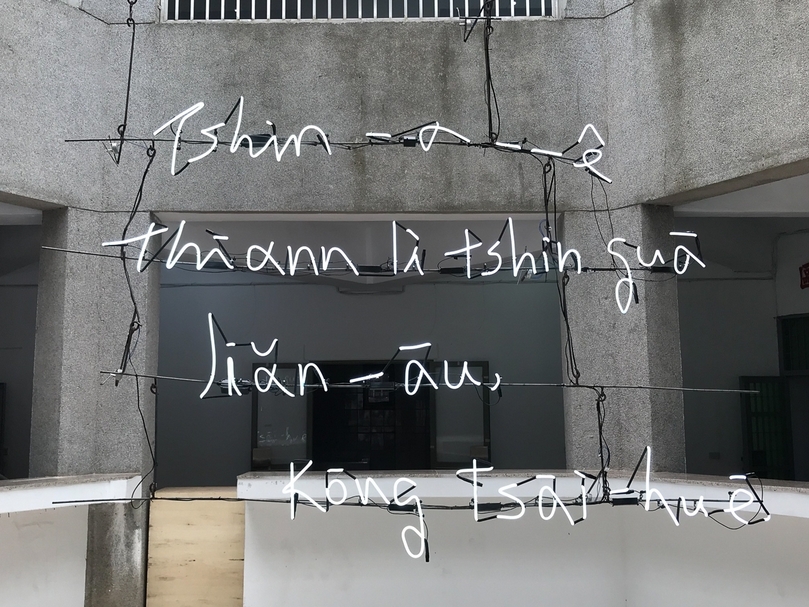 Tshin-a--ê
thīann lì tshin guā
liăn-āu,
kōng tsāi-huē.